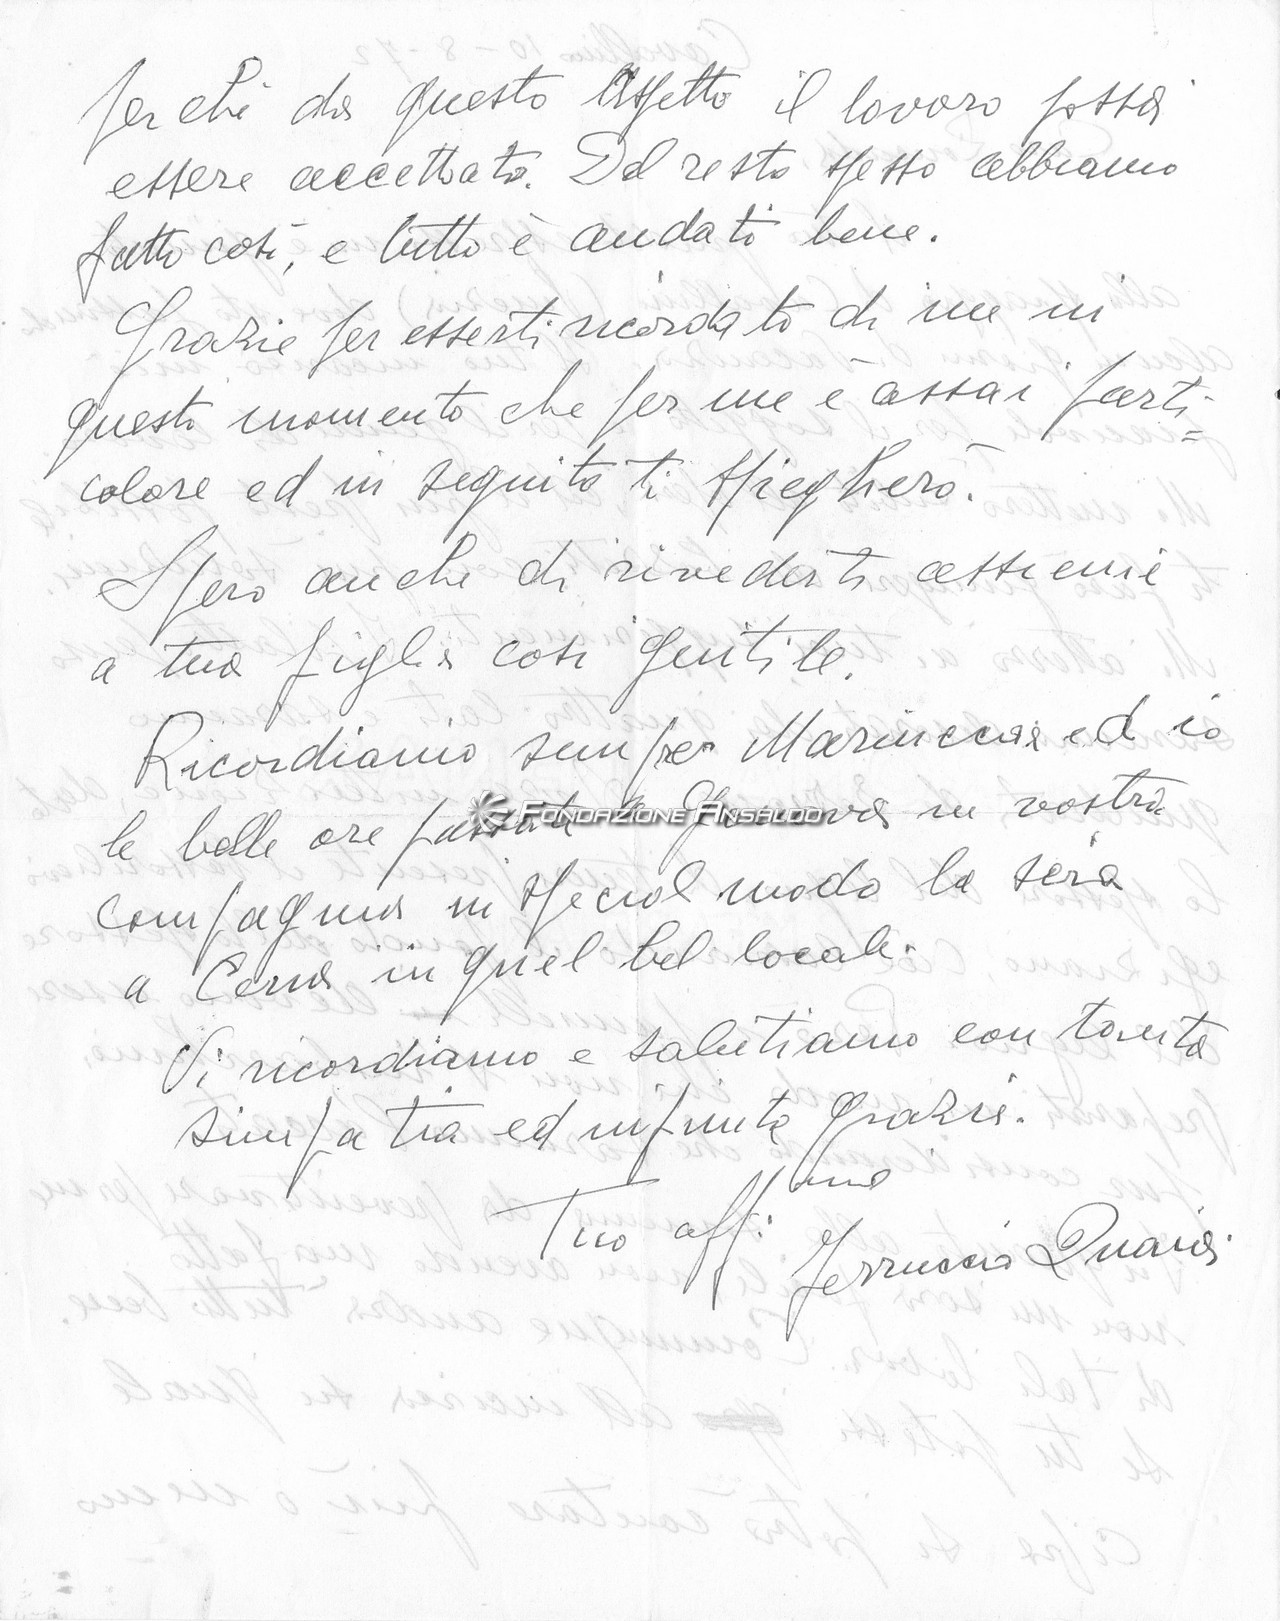 perchè da questo aspetto il lavoro possa
essere accettato. Del resto spesso abbiamo
fatto così, e tutto è andato bene.
Grazie per esserti ricordato di me in
questo momento che per me è assai parti-
colare ed in seguito ti spiegherò.
Spero anche di rivederti assieme
a tua figlia così gentile.
Ricordiamo sempre Mariuccia ed io
le belle ore passate a Genova in vostra
FONDAZIONE ANSALDO
compagnia in special modo la sera
a Cena in quel bel locale.
Vi ricordiamo e salutiamo con tanta
simpatia ed infinite grazie.
Tuo aff:mo
Ferruccio Quaia